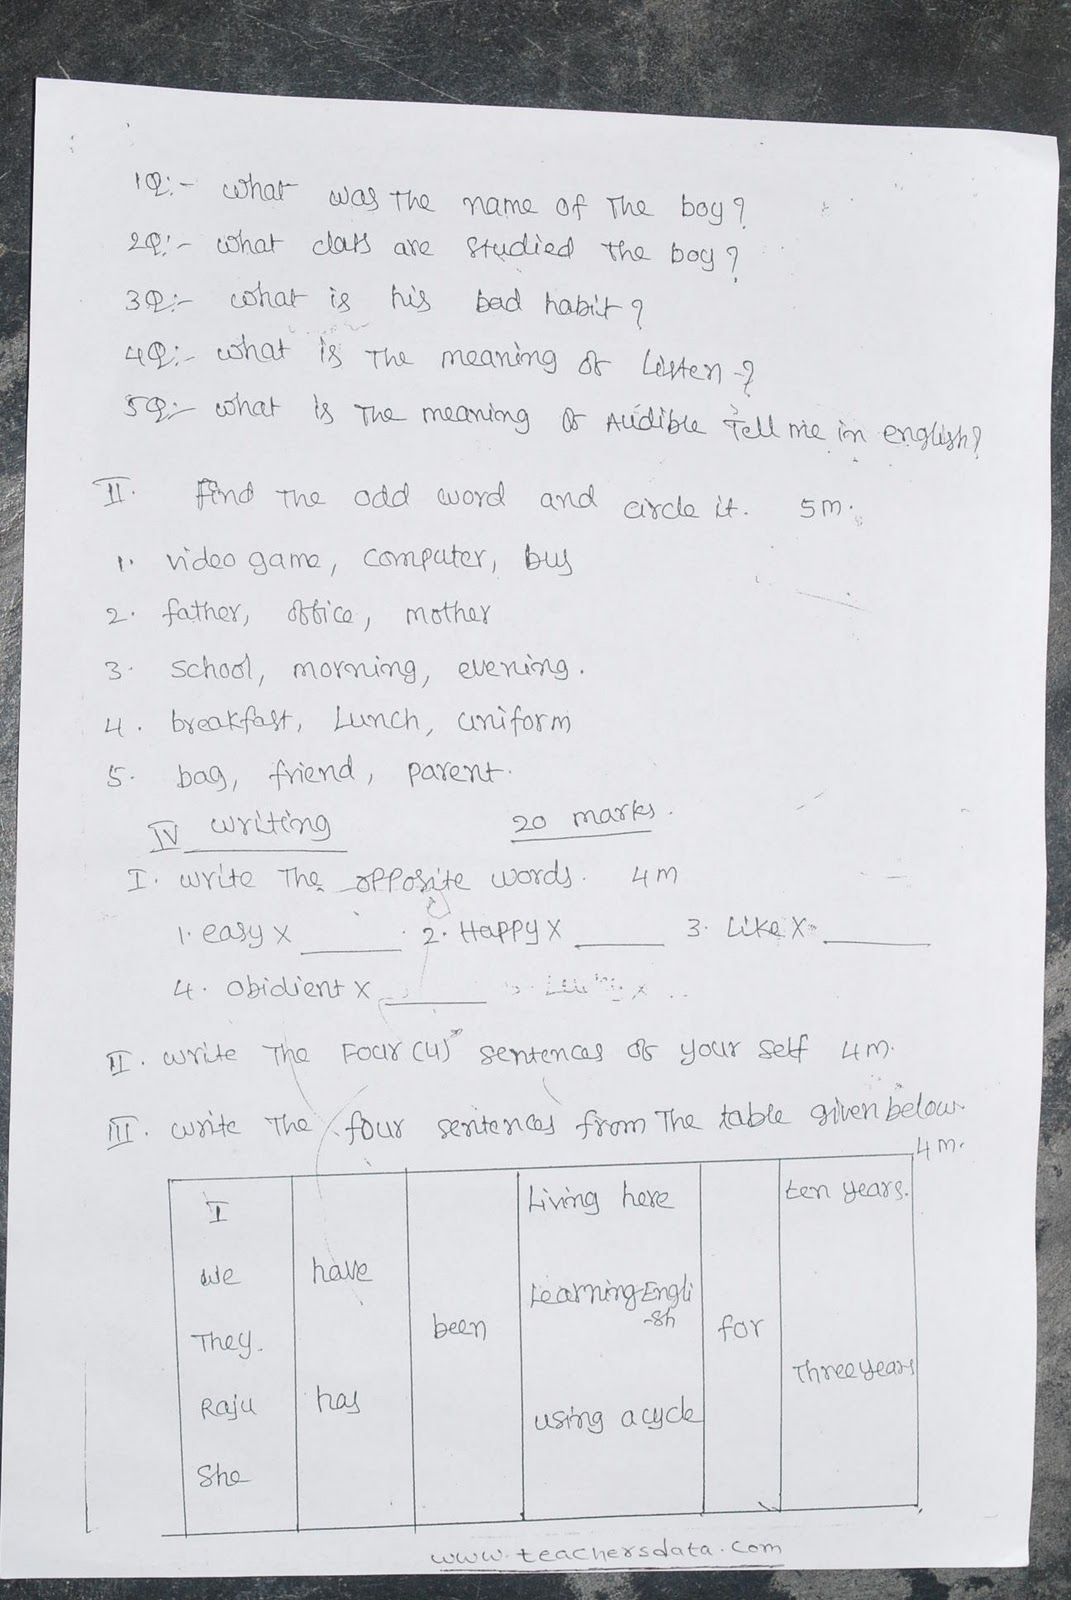 1Q:- what was The name of The boy?
2Q:- what class are studied the boy?
3Q:- what is his bad habit?
4Q:- what is The meaning of Listen-?
5Q:- what is The meaning of Audible Tell me in english?
II. find The odd word and circle it. 5m.
1. video game, computer, bus
2. father, office, mother
3. school, morning, evening.
4. breakfast, Lunch, uniform
5. bag, friend, parent.
IV writing 20 marks.
I. write The opposite words. 4m
1. easy x ____ 2. Happy x ____ 3. Like x ____
4. obidient x ____
II. write The Four (4) sentences of your self 4m.
III. write The four sentences from The table given below.
4m.
I
we
They.
Raju
She
have
has
been
Living here
Learning-Engli
-sh
using a cycle
for
ten years.
Three years
www.teachersdata.com